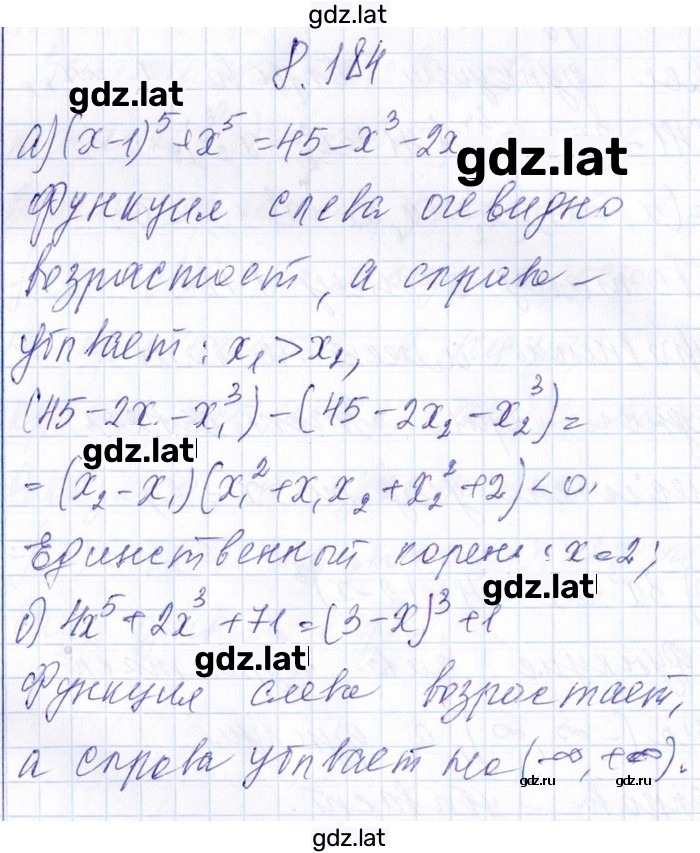 gdz.lat
8.184
gdz.lat
а) (x-1)⁵ + x⁵ = 45 - x³ - 2x
gdz.lat
Функция слева очевидно
возрастает, а справа –
убывает: x₁ > x₂,
(45 - 2x - x₁³) - (45 - 2x₂ - x₂³) =
gdz.lat
= (x₂ - x₁)(x₁² + x₁x₂ + x₂² + 2) < 0.
Единственный корень: x = 2;
gdz.lat
б) 4x⁵ + 2x³ + 71 = (3 - x)³ + 1
gdz.lat
Функция слева возрастает,
а справа убывает на (-∞, +∞).
gdz.ru gdz.ru
gdz.lat